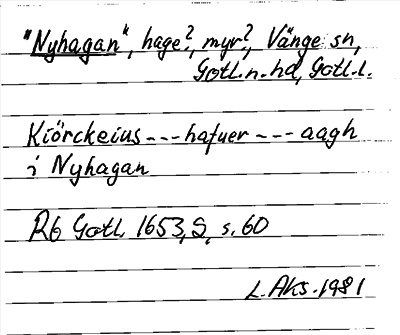 "Nyhagan", hage?, myr?, Vänge sn,
Gotl.n.hd, Gotl.l.
Kiörckeius---hafuer---aagh
i Nyhagan
Rb Gotl. 1653, S, s. 60
L. Aks. 1981